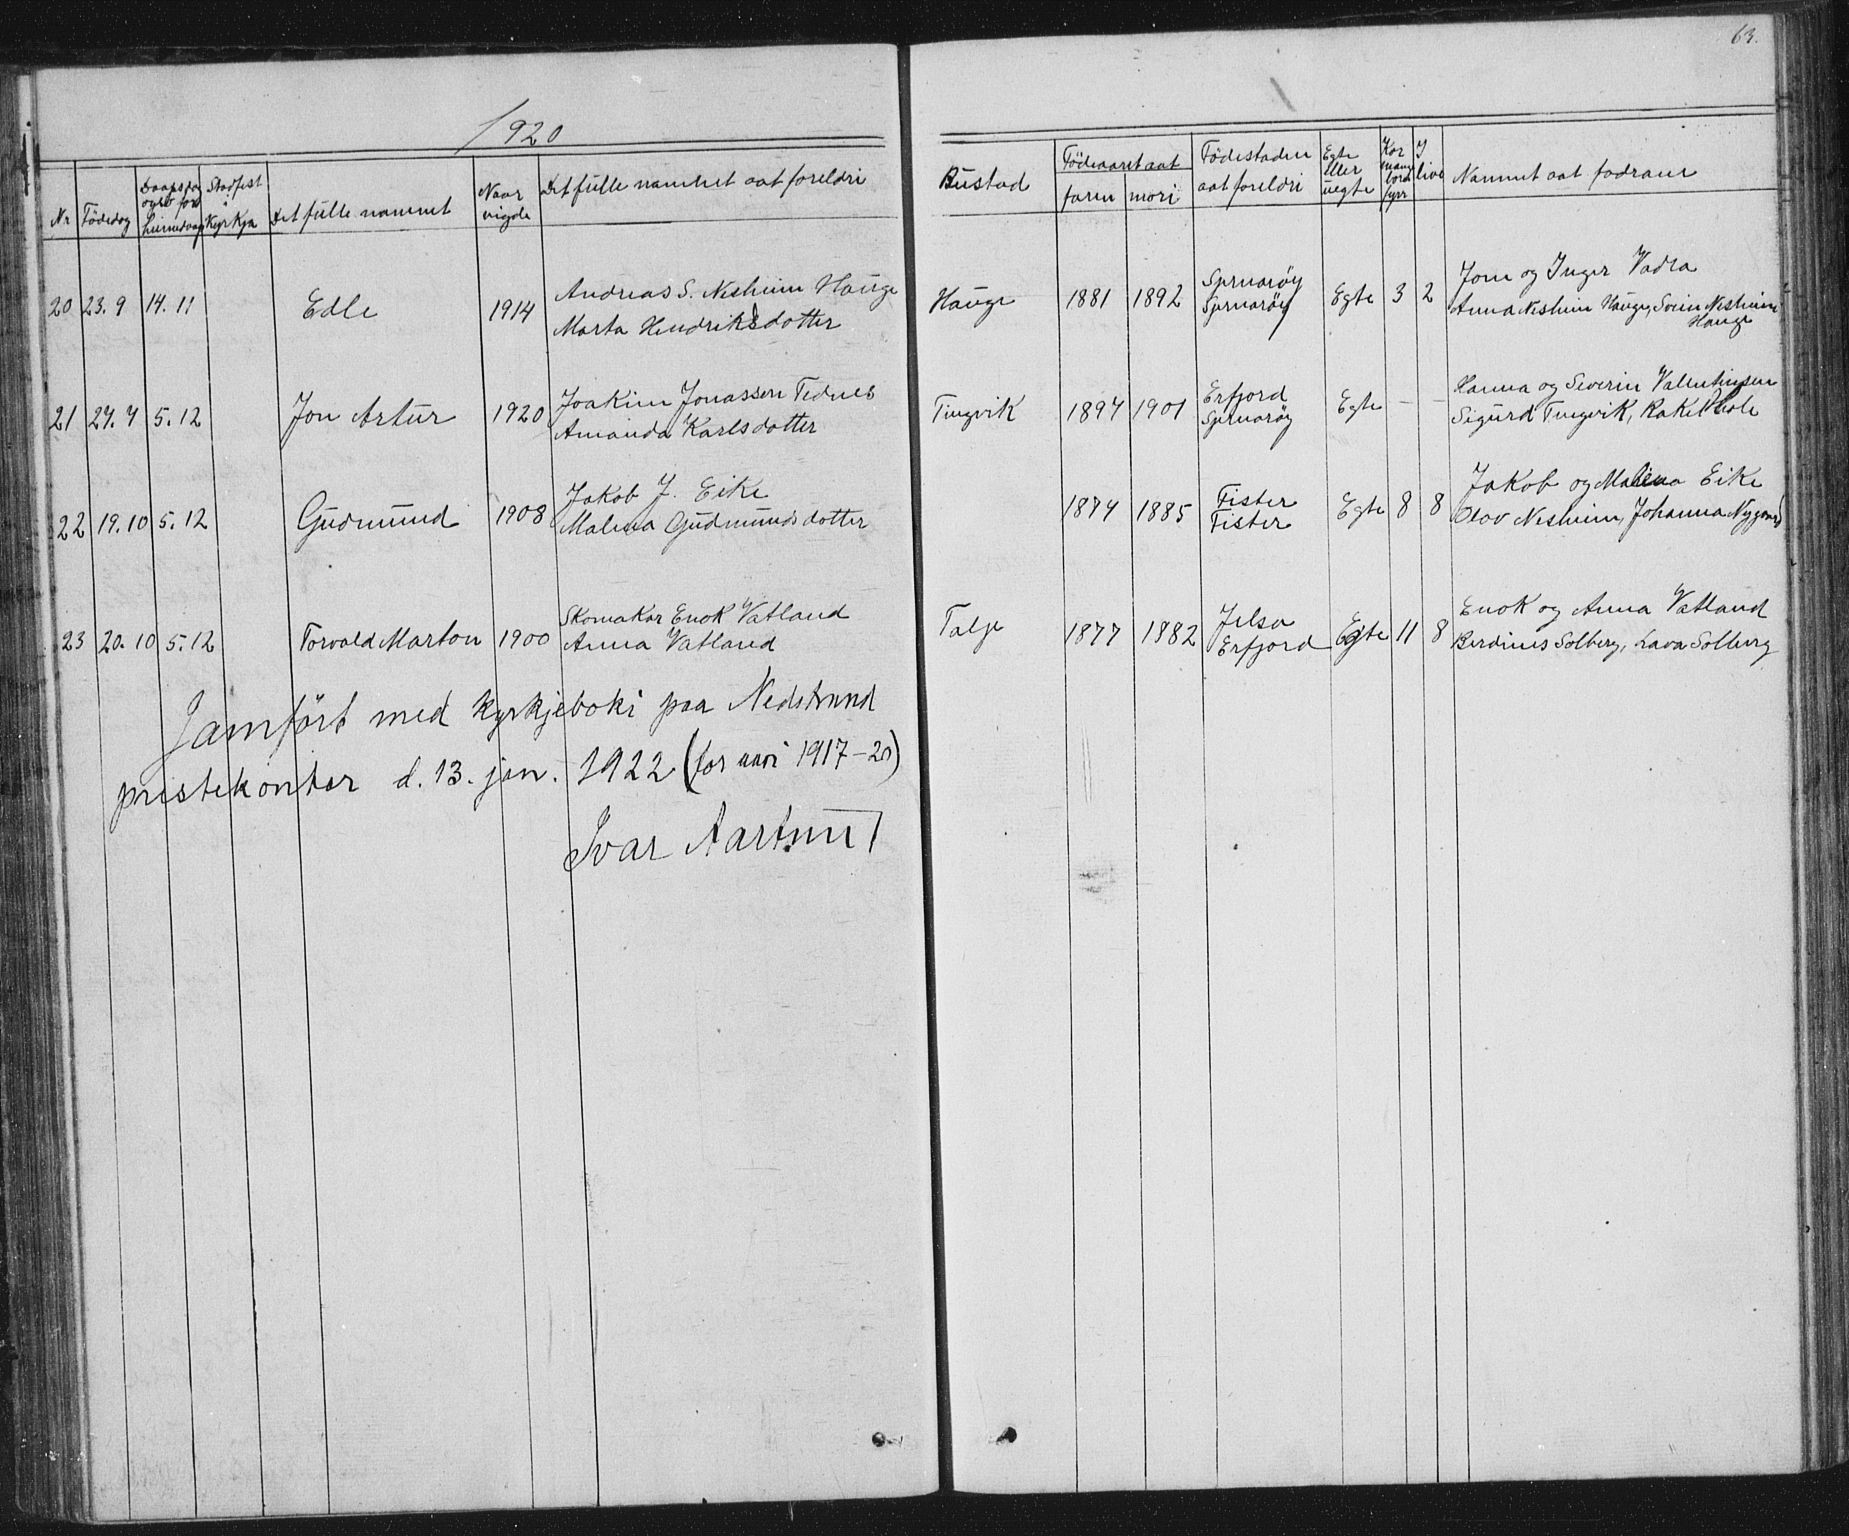 63.
1920
Nr Födedag Daapsdag og stad for heimedaap Stadfest i Kyrkja Det fulle namnet Naar vigde Det fulle namnet aat foreldri Bustad Födeaaret aat faren mori Födestaden aat foreldri Egte eller uegte Kor mange born fyrr I live Namnet aat fadrane
20 23.9 14.11 Edle 1914 Andreas S. Nesheim Hauge Hauge 1881 1892 Sjernaröy Egte 3 2 Jone og Inger Vadla
Marta Hendriksdotter Sjernaröy Anna Nesheim Hauge, Svein Nesheim Hauge
21 27.7 5.12 Jon Artur 1920 Joakim Jonassen Tednes Tungvik 1897 1901 Erfjord Egte – – Hanna og Severin Valentinsen
Amanda Karlsdotter Sjernaröy Sigurd Tungvik, Rakel
22 19.10 5.12 Gudmund 1908 Jakob J. Eike 1874 1885 Fister Egte 8 8 Jakob og Malena Eike
Malena Gudmundsdotter Fister Olav Nesheim, Johanna Nygaard
23 20.10 5.12 Torvald Marton 1900 Skomakar Enok Vatland Talje 1877 1882 Jelsa Egte 11 8 Enok og Anna Vatland
Anna Vatland Erfjord Berdines Solberg, Lava Solberg
Jamfört med kyrkjeboki paa Nedstrand
prestekontor d. 13. jan. 1922 (for aari 1917–20)
Ivar Aartun